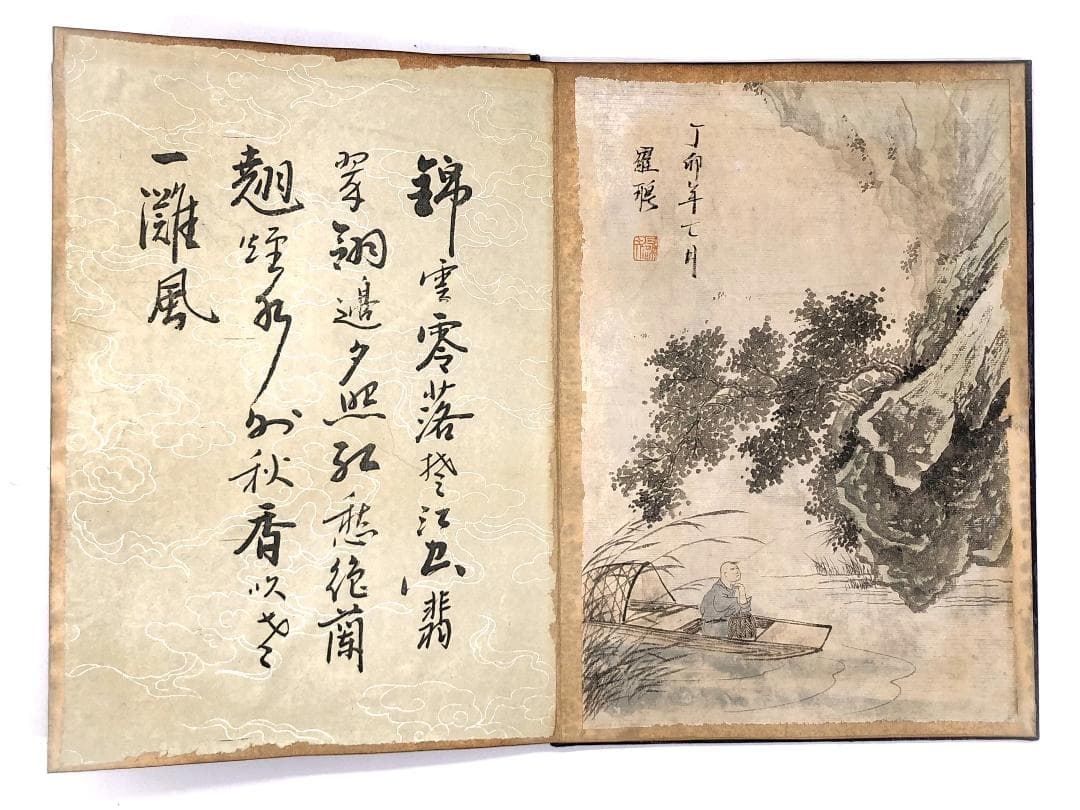 丁卯年七月
羅聘
錦雲零落楚江空翡
翠翎邊夕照紅愁絕蘭
翹煙水外秋香吹老
一灘風